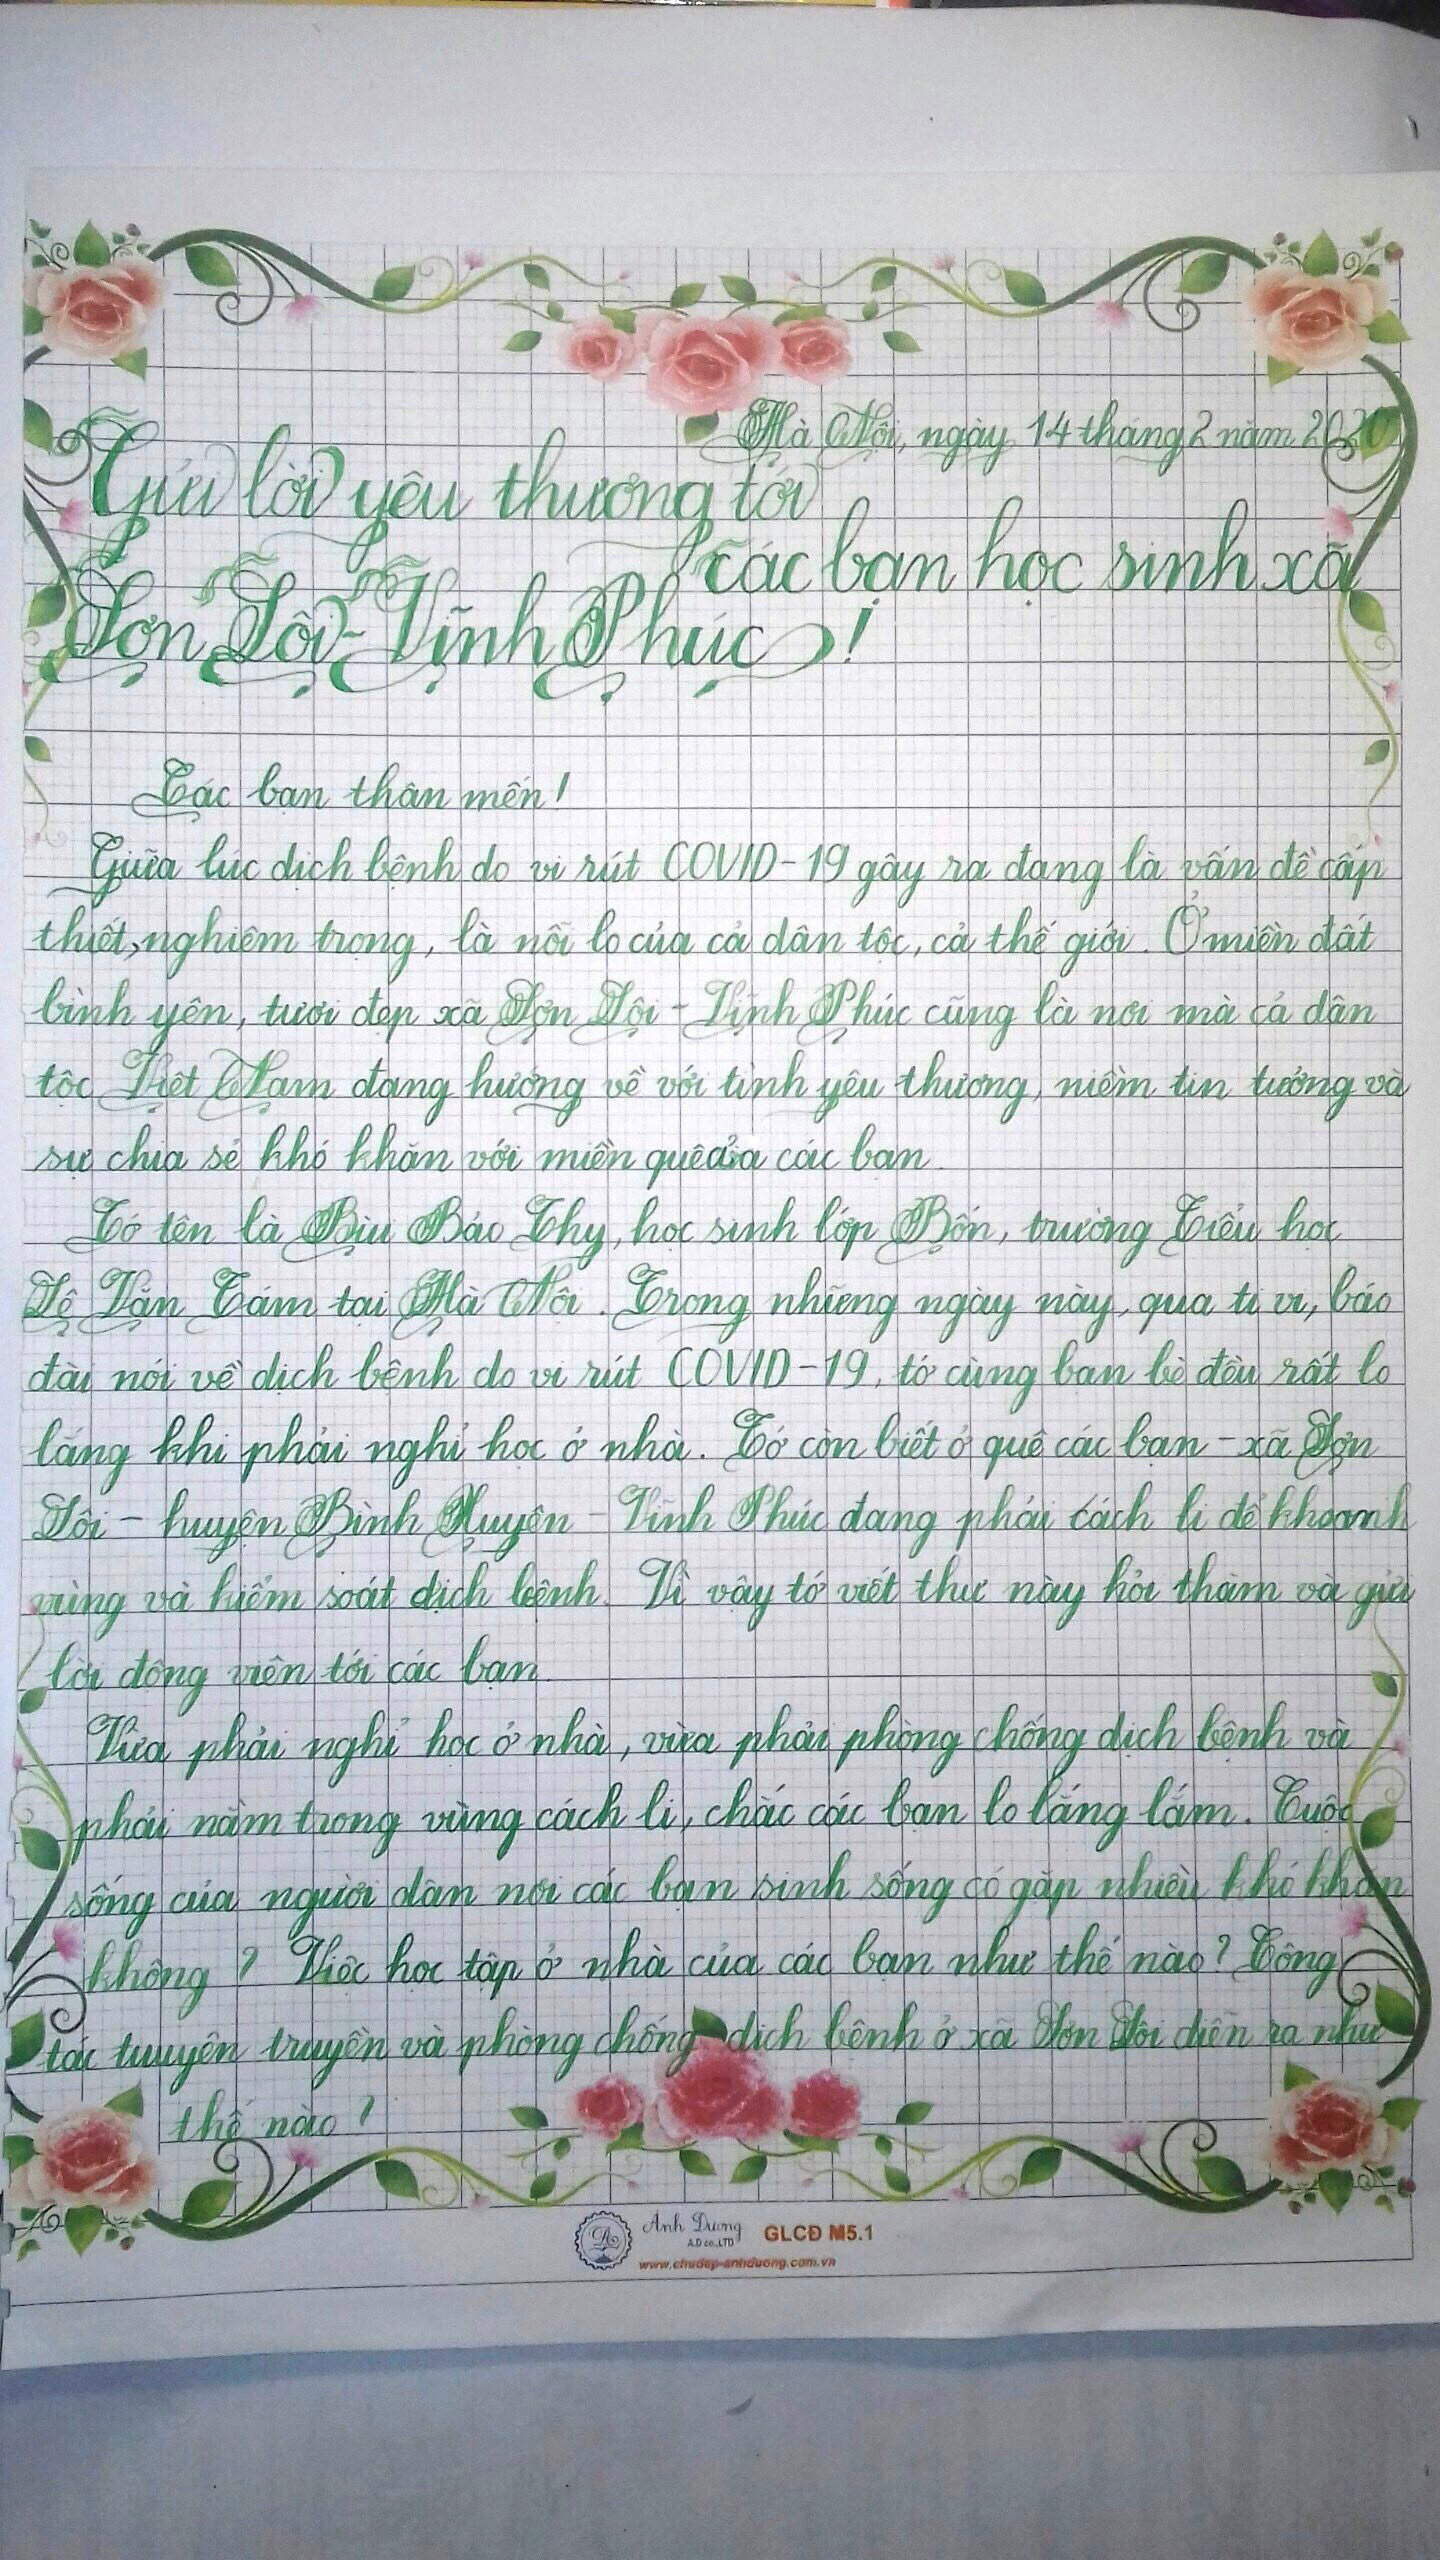 Hà Nội, ngày 14 tháng 2 năm 2020
Gửi lời yêu thương tới
các bạn học sinh xã
Sơn Lôi - Vĩnh Phúc!
Các bạn thân mến!
Giữa lúc dịch bệnh do vi rút COVID-19 gây ra đang là vấn đề cấp
thiết, nghiêm trọng, là nỗi lo của cả dân tộc, cả thế giới. Ở miền đất
bình yên, tươi đẹp xã Sơn Lôi - Vĩnh Phúc cũng là nơi mà cả dân
tộc Việt Nam đang hướng về với tình yêu thương, niềm tin tưởng và
sự chia sẻ khó khăn với miền quê của các bạn.
Tớ tên là Bùi Bảo Thy, học sinh lớp Bốn, trường Tiểu học
Lê Văn Tám tại Hà Nội. Trong những ngày này, qua ti vi, báo
đài nói về dịch bệnh do vi rút COVID-19, tớ cùng bạn bè đều rất lo
lắng khi phải nghỉ học ở nhà. Tớ còn biết ở quê các bạn - xã Sơn
Lôi - huyện Bình Xuyên - Vĩnh Phúc đang phải cách li để khoanh
vùng và kiểm soát dịch bệnh. Vì vậy tớ viết thư này hỏi thăm và gửi
lời động viên tới các bạn.
Vừa phải nghỉ học ở nhà, vừa phải phòng chống dịch bệnh và
phải nằm trong vùng cách li, chắc các bạn lo lắng lắm. Cuộc
sống của người dân nơi các bạn sinh sống có gặp nhiều khó khăn
không? Việc học tập ở nhà của các bạn như thế nào? Công
tác tuyên truyền và phòng chống dịch bệnh ở xã Sơn Lôi diễn ra như
thế nào?
Ánh Dương
A.D co.,LTD
GLCĐ M5.1
www.chudep-anhduong.com.vn